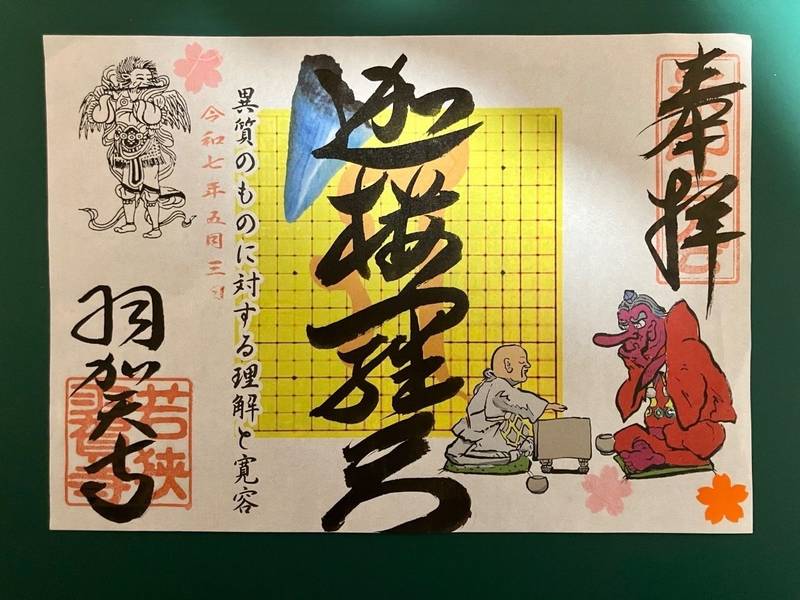 奉拝
迦楼羅天
異質のものに対する理解と寛容
令和七年五月三日
羽賀寺
若狭
羽賀寺